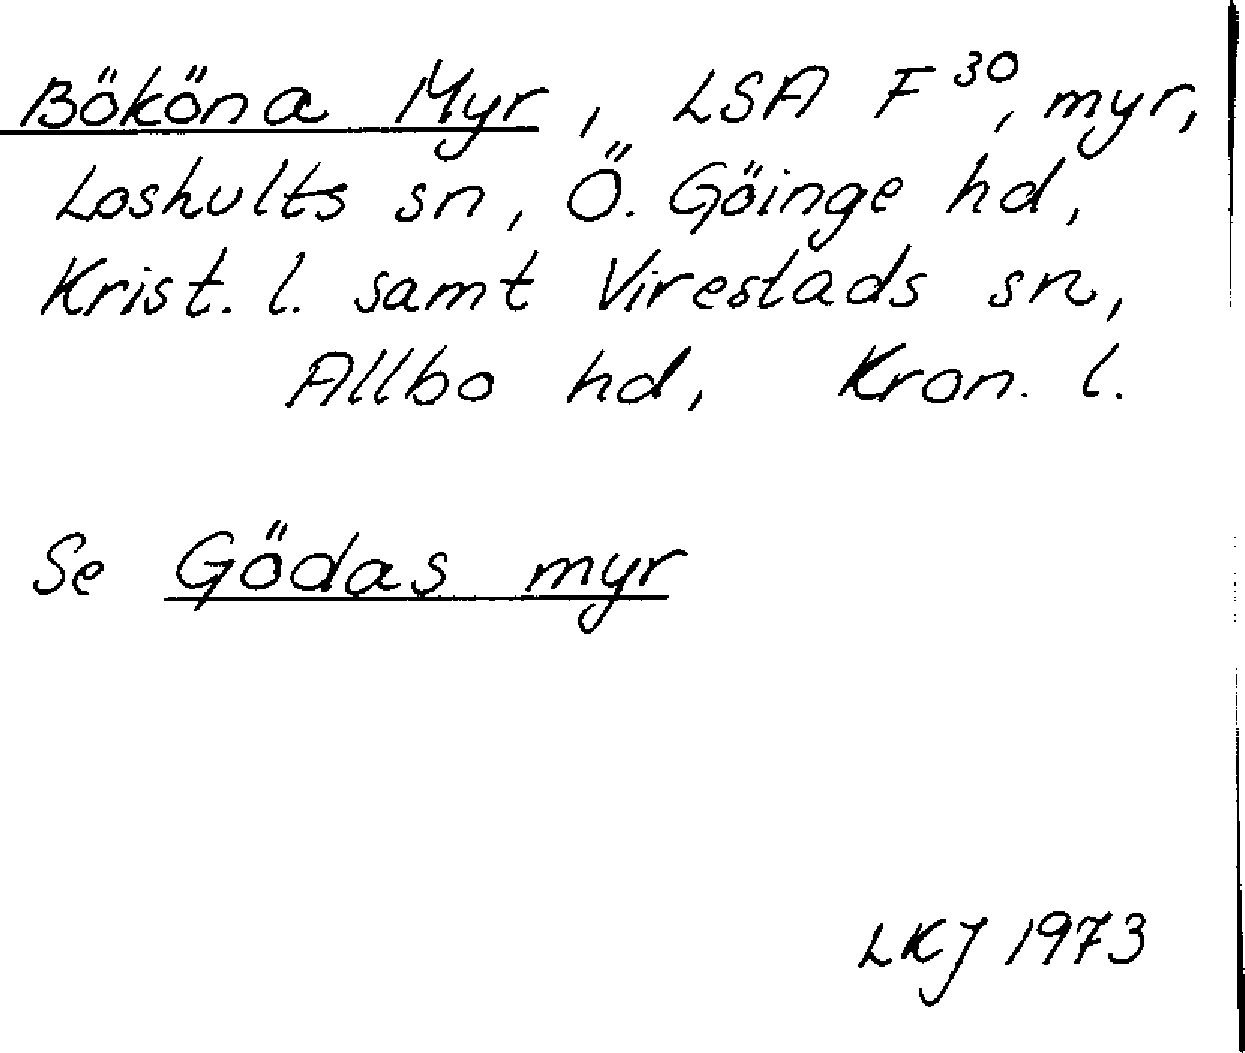 Bököna Myr, LSA F³⁰, myr,
Loshults sn, Ö. Göinge hd,
Krist. l. samt Virestads sn,
Allbo hd, Kron. l.
Se Gödas myr
LKJ 1973